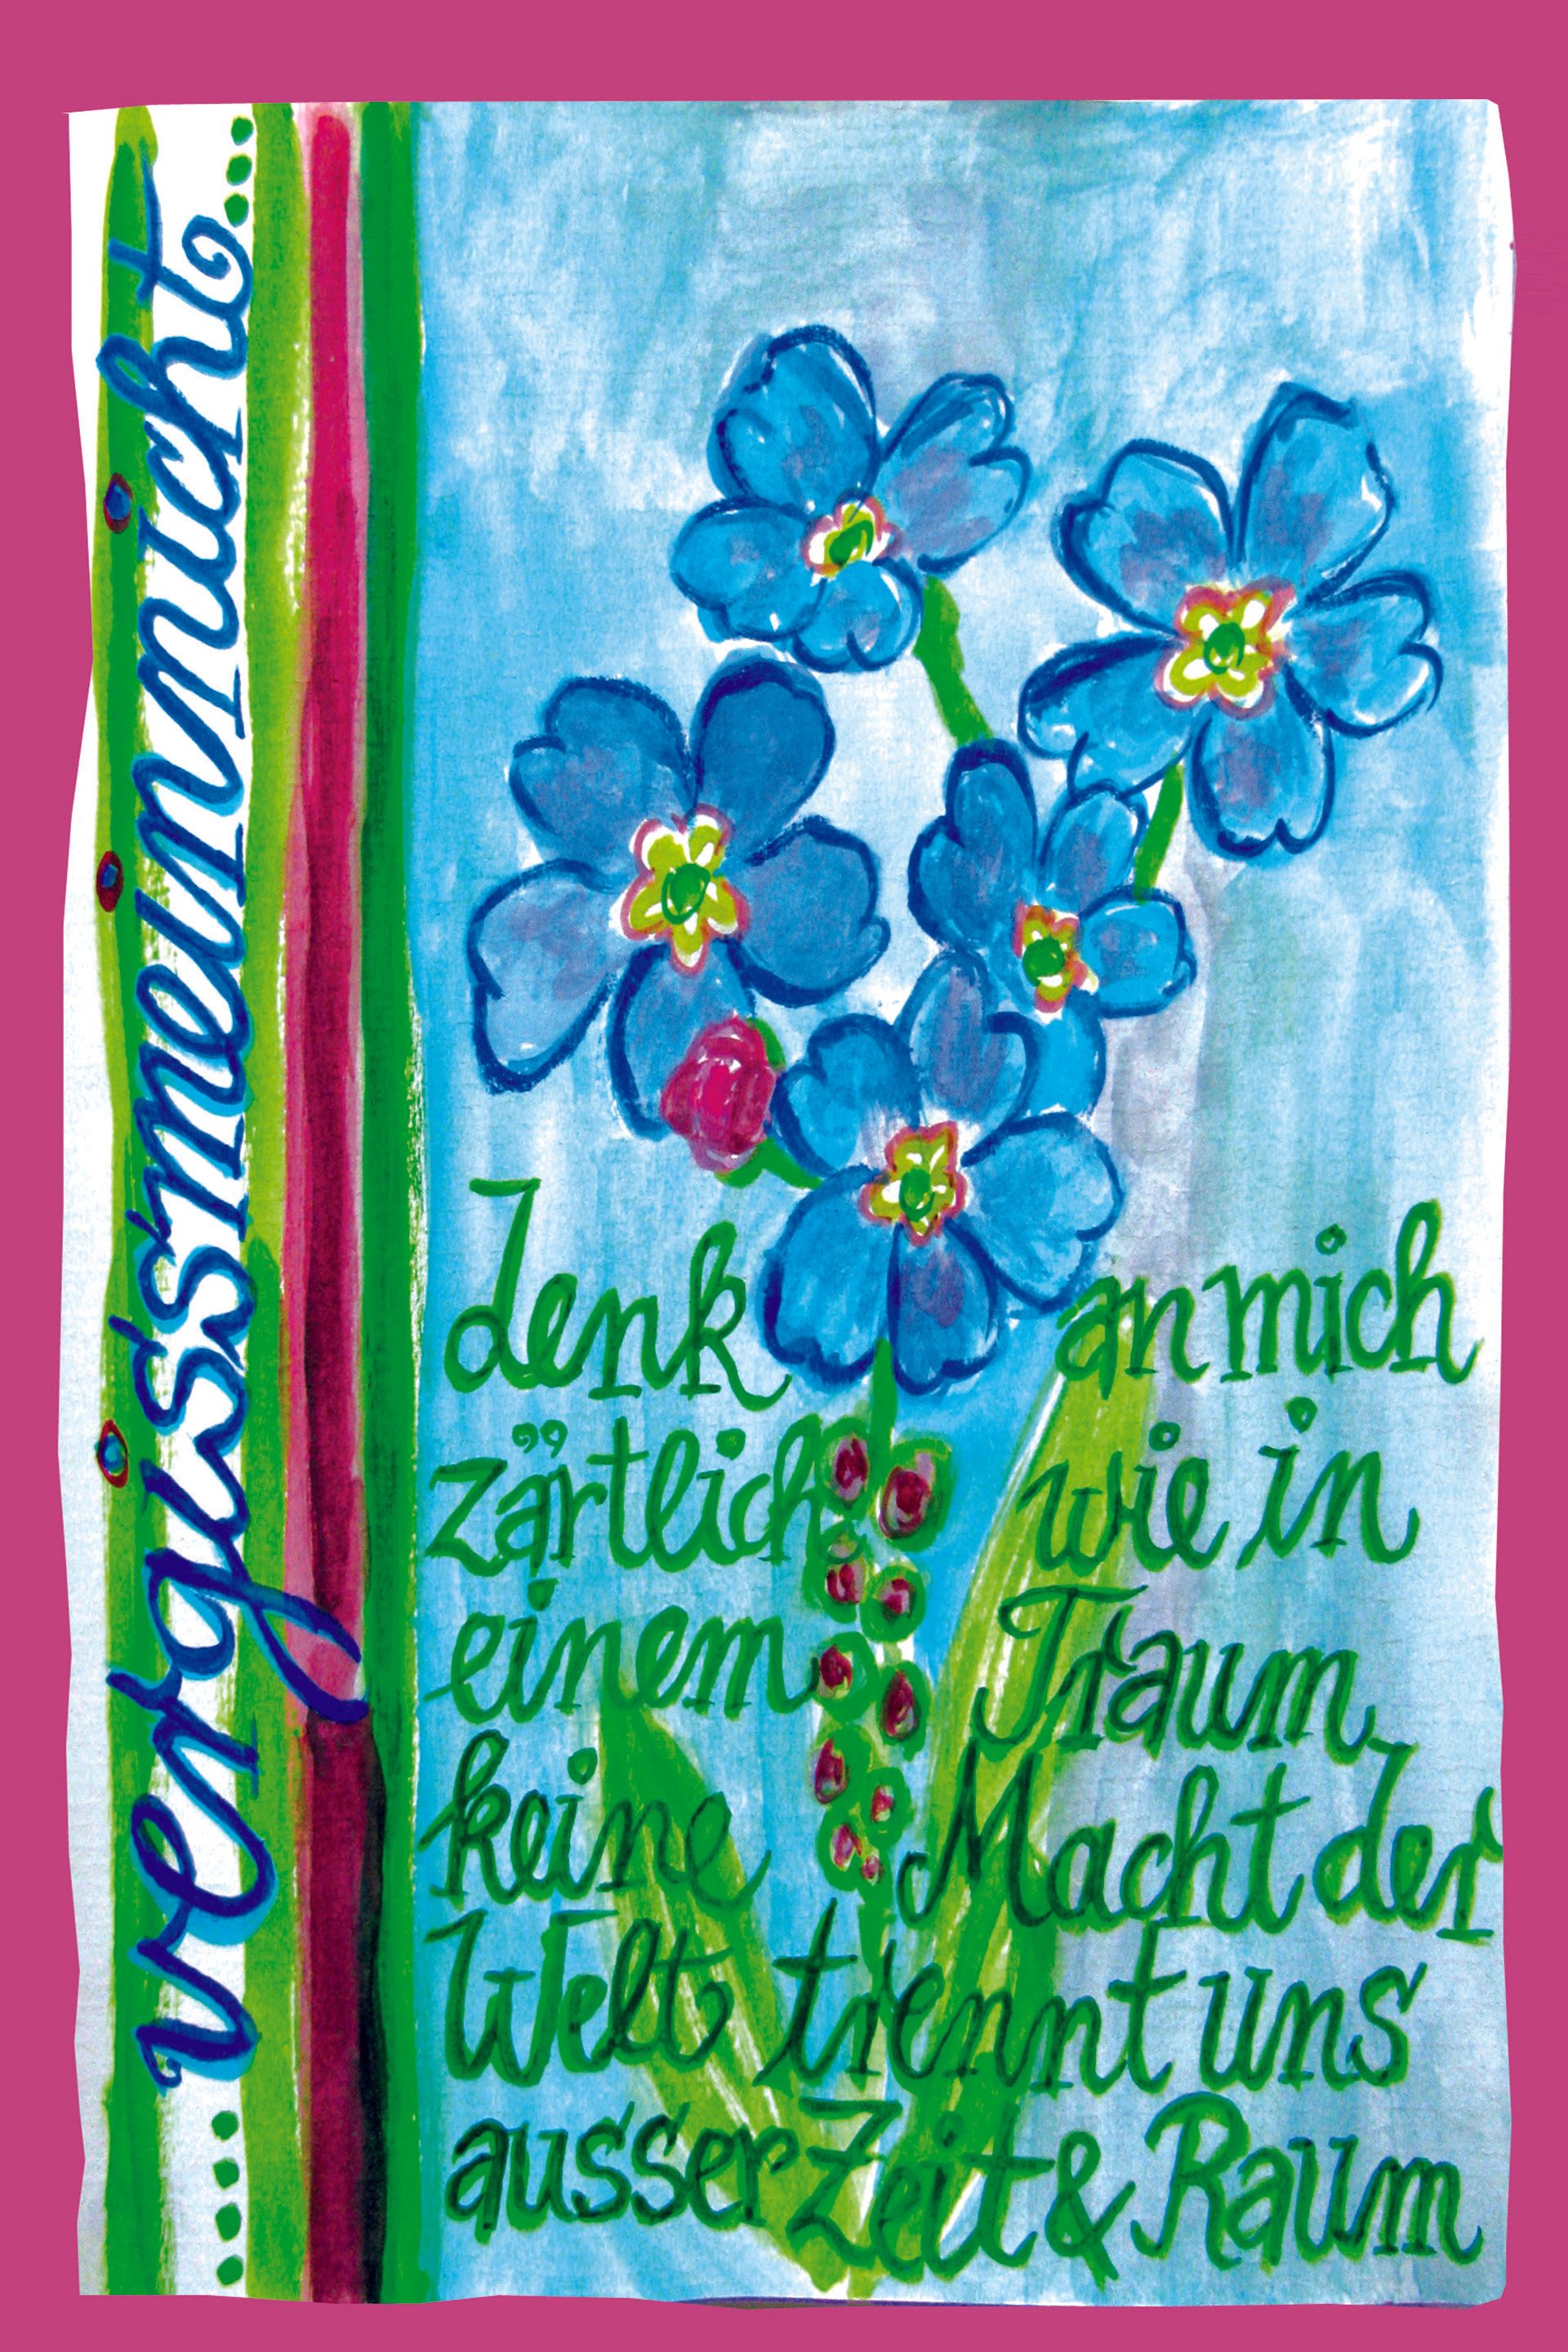 ...vergissmeinnicht...
denk an mich
zärtlich wie in
einem Traum
keine Macht der
Welt trennt uns
ausser Zeit & Raum